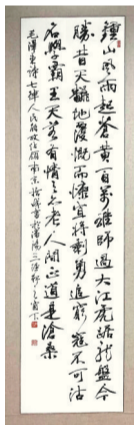 鐘山風雨起蒼黃百萬雄師過大江虎踞龍盤今
勝昔天翻地覆慨而慷宜將剩勇追窮寇不可沽
名學霸王天若有情天亦老人間正道是滄桑
毛澤東詩七律人民解放軍佔領南京